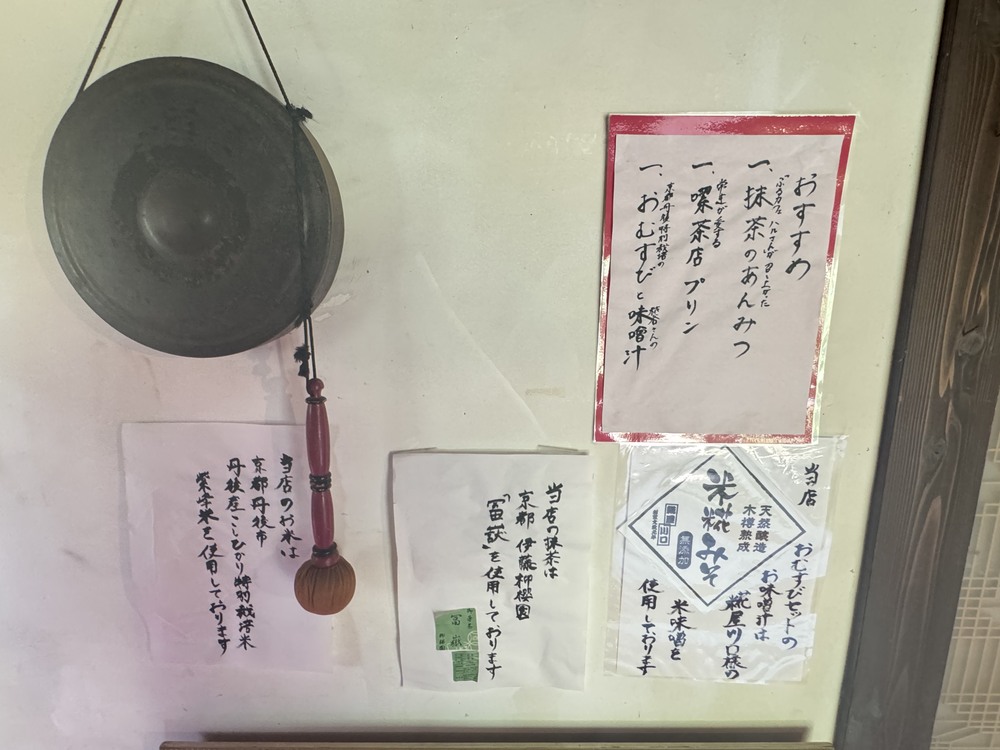 おすすめ
一、抹茶のあんみつ
一、喫茶店プリン
京都丹後特別栽培の
一、おむすびと味噌汁
当店
おむすびセットの
お味噌汁は
糀屋川口様の
米味噌を
使用しております
天然醸造
木樽熟成
米糀みそ
無添加
当店の抹茶は
京都 伊藤柳櫻園
「冨嶽」を使用しております
冨嶽
当店のお米は
京都丹後市
丹後産こしひかり特別栽培米
紫幸米を使用しております